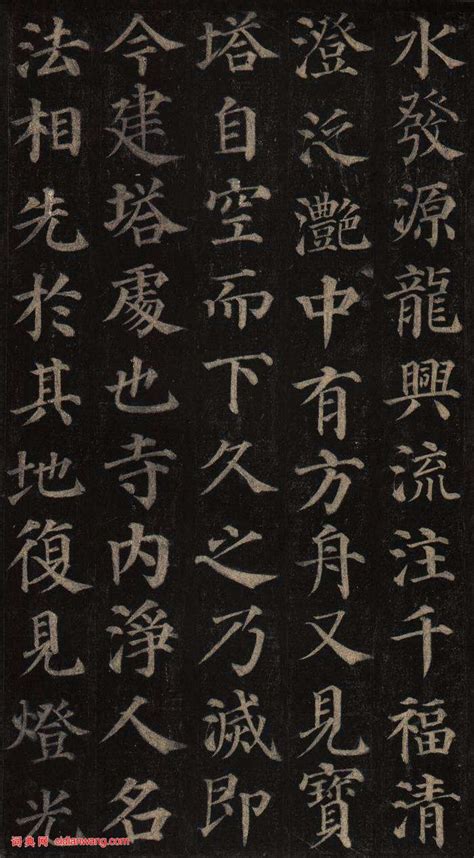 水發源龍興流注千福清
澄泛灧中有方舟又見寶
塔自空而下久之乃滅即
今建塔處也寺内淨人名
法相先於其地復見燈光
词典网 cidianwang.com